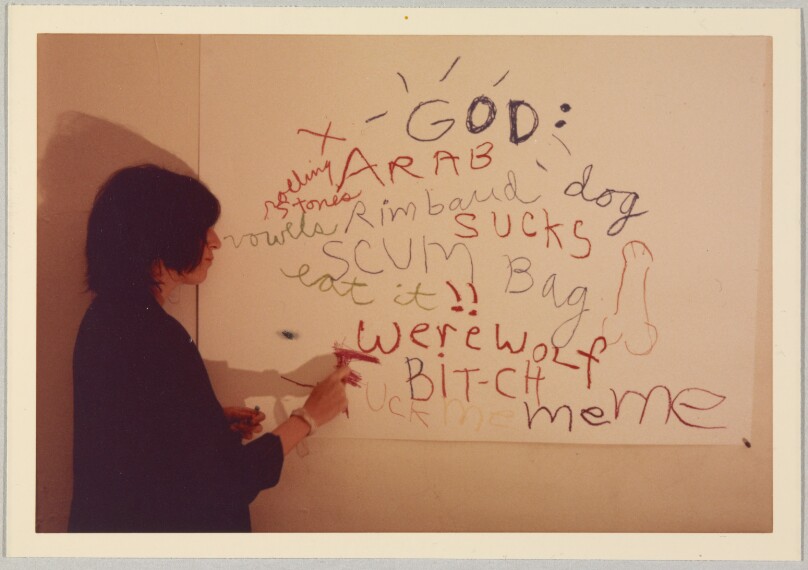 GOD:
X ARAB
rolling stones
Rimbaud dog
vowels SUCKS
SCUM Bag
eat it!!
werewolf
BIT-CH
FUCK me meME